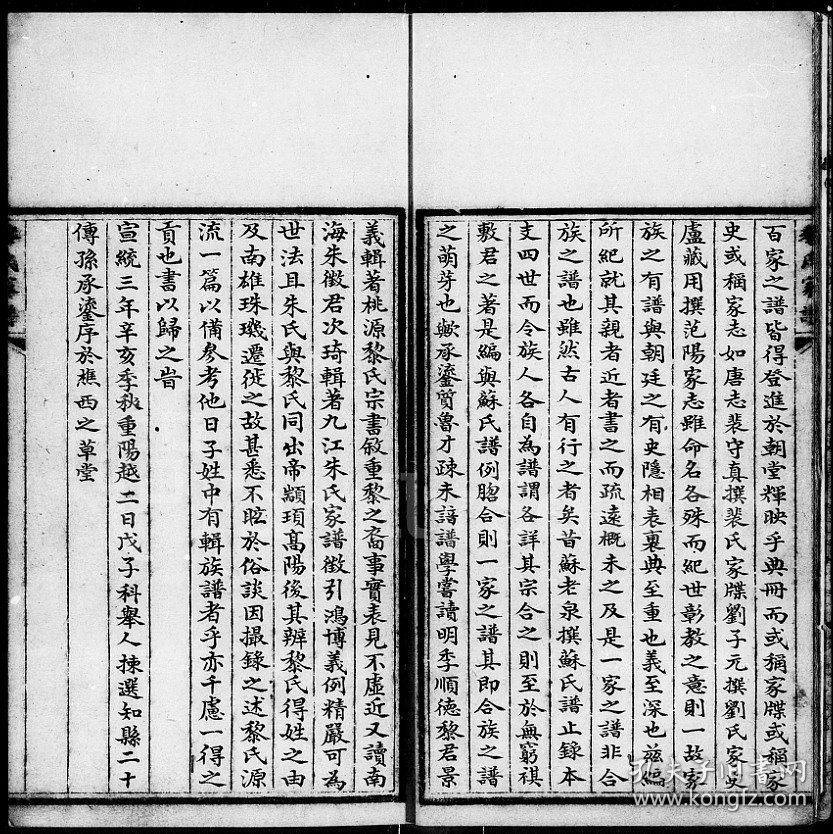 百家之譜皆得登進於朝堂輝映乎典冊而或稱家牒或稱家
史或稱家志如唐志裴守真撰裴氏家牒劉子元撰劉氏家史
盧藏用撰范陽家志雖命名各殊而紀世彰教之意則一故家
族之有譜與朝廷之有史隱相表裏典至重也義至深也茲編
所紀就其親者近者書之而疏遠概未之及是一家之譜非合
族之譜也雖然古人有行之者矣昔蘇老泉撰蘇氏譜止錄本
支四世而令族人各自為譜謂各詳其宗合之則至於無窮祺
敷君之著是編與蘇氏譜例脗合則一家之譜其即合族之譜
之萌芽也歟承鎏質魯才疎未諳譜學嘗讀明季順德黎君景
義輯著桃源黎氏宗書敘重黎之裔事實表見不虛近又讀南
海朱徵君次琦輯著九江朱氏家譜徵引鴻博義例精嚴可為
世法且朱氏與黎氏同出帝顓頊髙陽後其辨黎氏得姓之由
及南雄珠璣遷徙之故甚悉不眩於俗談因撮錄之述黎氏源
流一篇以備參考他日子姓中有輯族譜者乎亦千慮一得之
貢也書以歸之旹
宣統三年辛亥季秋重陽越二日戊子科舉人揀選知縣二十
傳孫承鎏序於樵西之草堂
孔夫子旧书网
www.kongfz.com